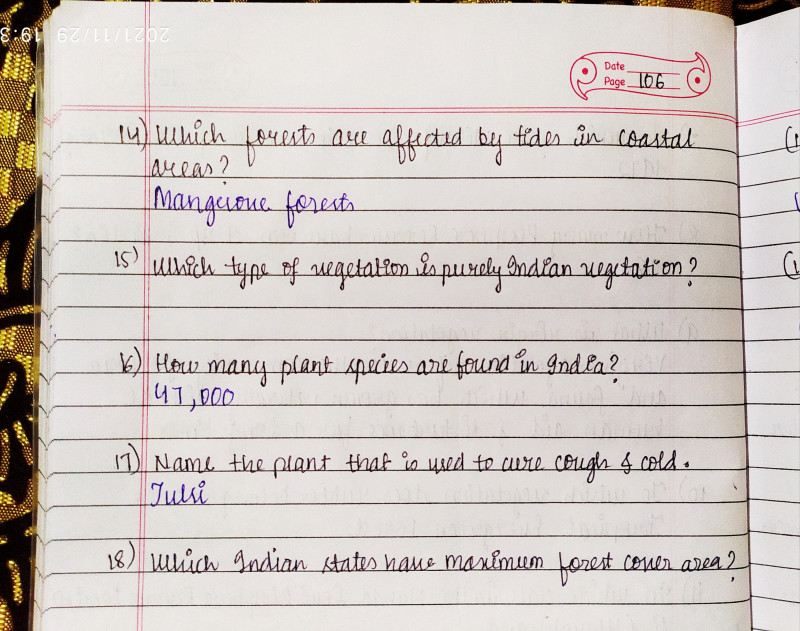 2021/11/29 19:3
Date
Page 106
14) Which forests are affected by tides in coastal
areas?
Mangrove forests
15) Which type of vegetation is purely Indian vegetation?
16) How many plant species are found in India?
47,000
17) Name the plant that is used to cure cough & cold.
Tulsi
18) Which Indian states have maximum forest cover area?